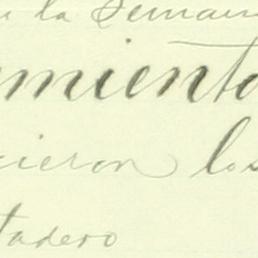 la Semana
mienta
cieron los
tadero